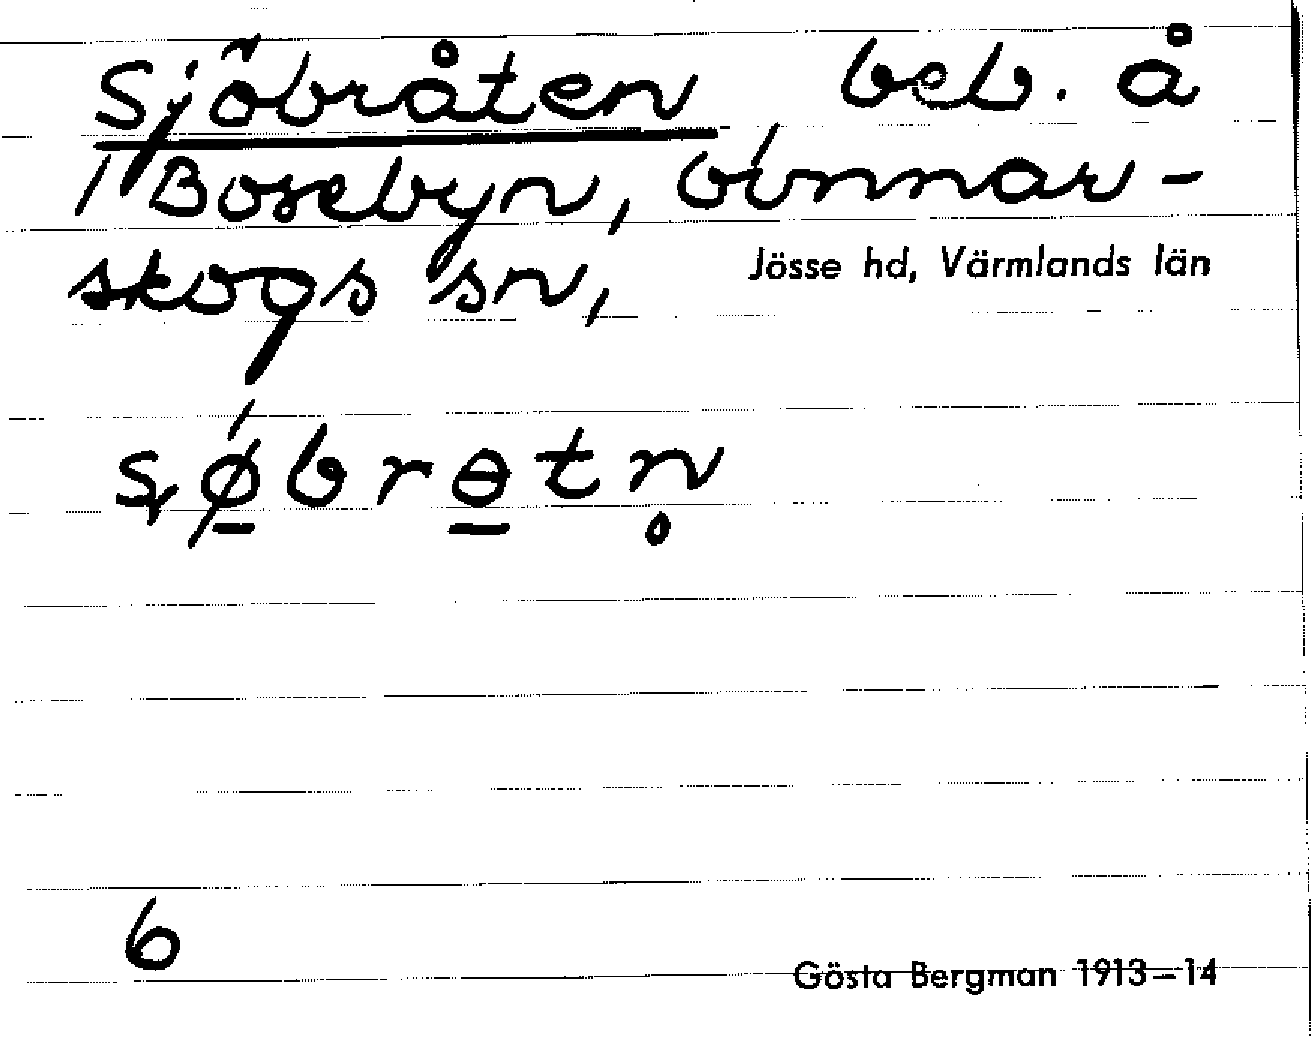 Sjöbråten beb. å
1 Bosebyn, Brunnar-
skogs sn, Jösse hd, Värmlands län
sø̱brɵ̱tn̥
6
Gösta Bergman 1913–14